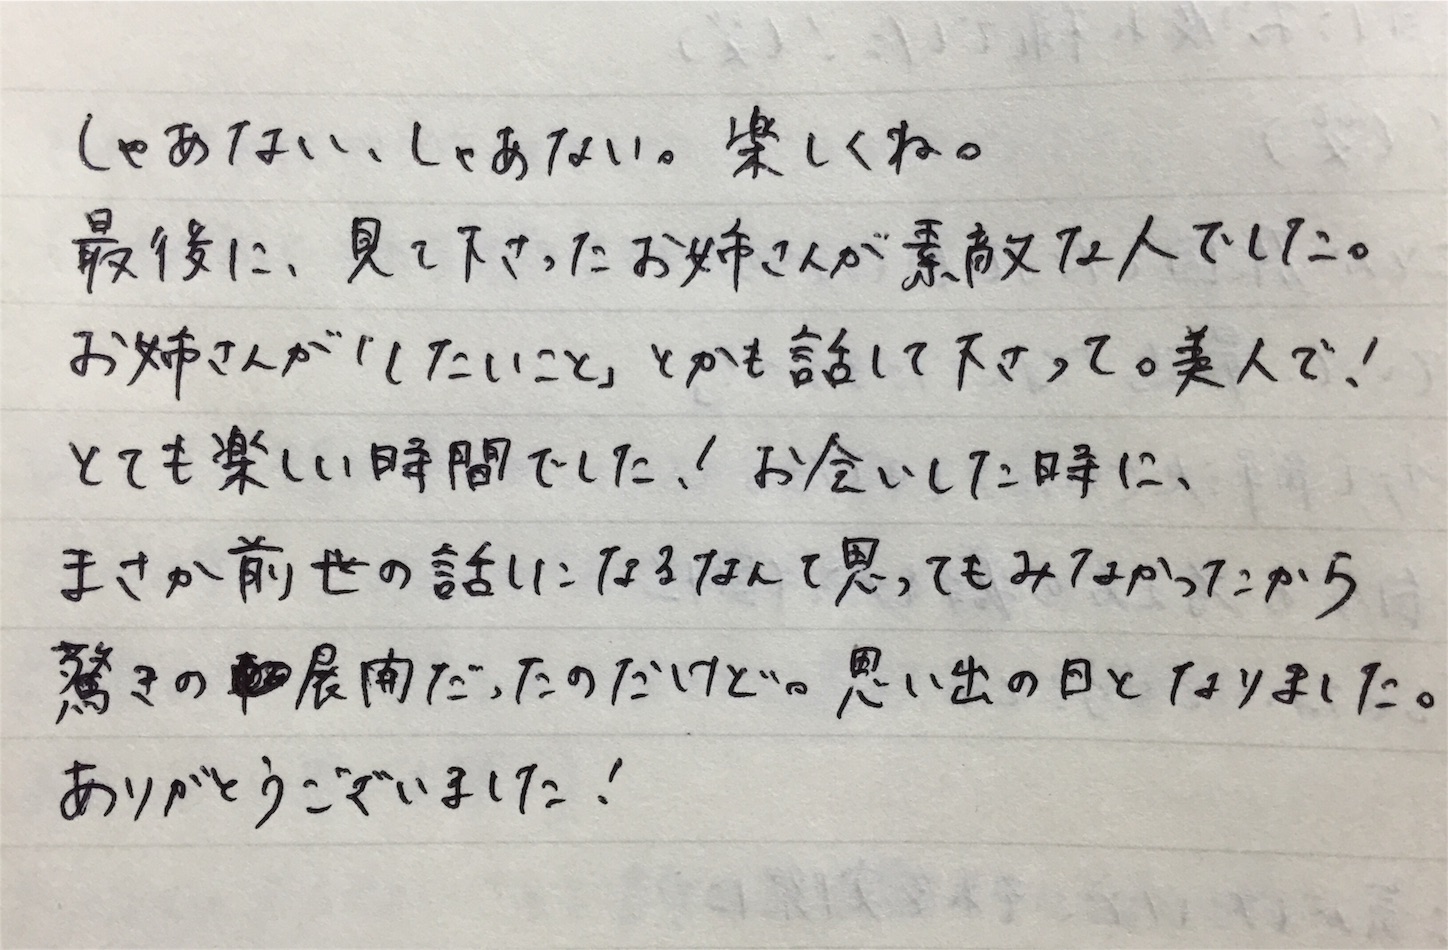 しゃあない、しゃあない。楽しくね。
最後に、見て下さったお姉さんが素敵な人でした。
お姉さんが「したいこと」とかも話して下さって。美人で！
とても楽しい時間でした！お会いした時に、
まさか前世の話しになるなんて思ってもみなかったから
驚きの展開だったのだけど。思い出の日となりました。
ありがとうございました！